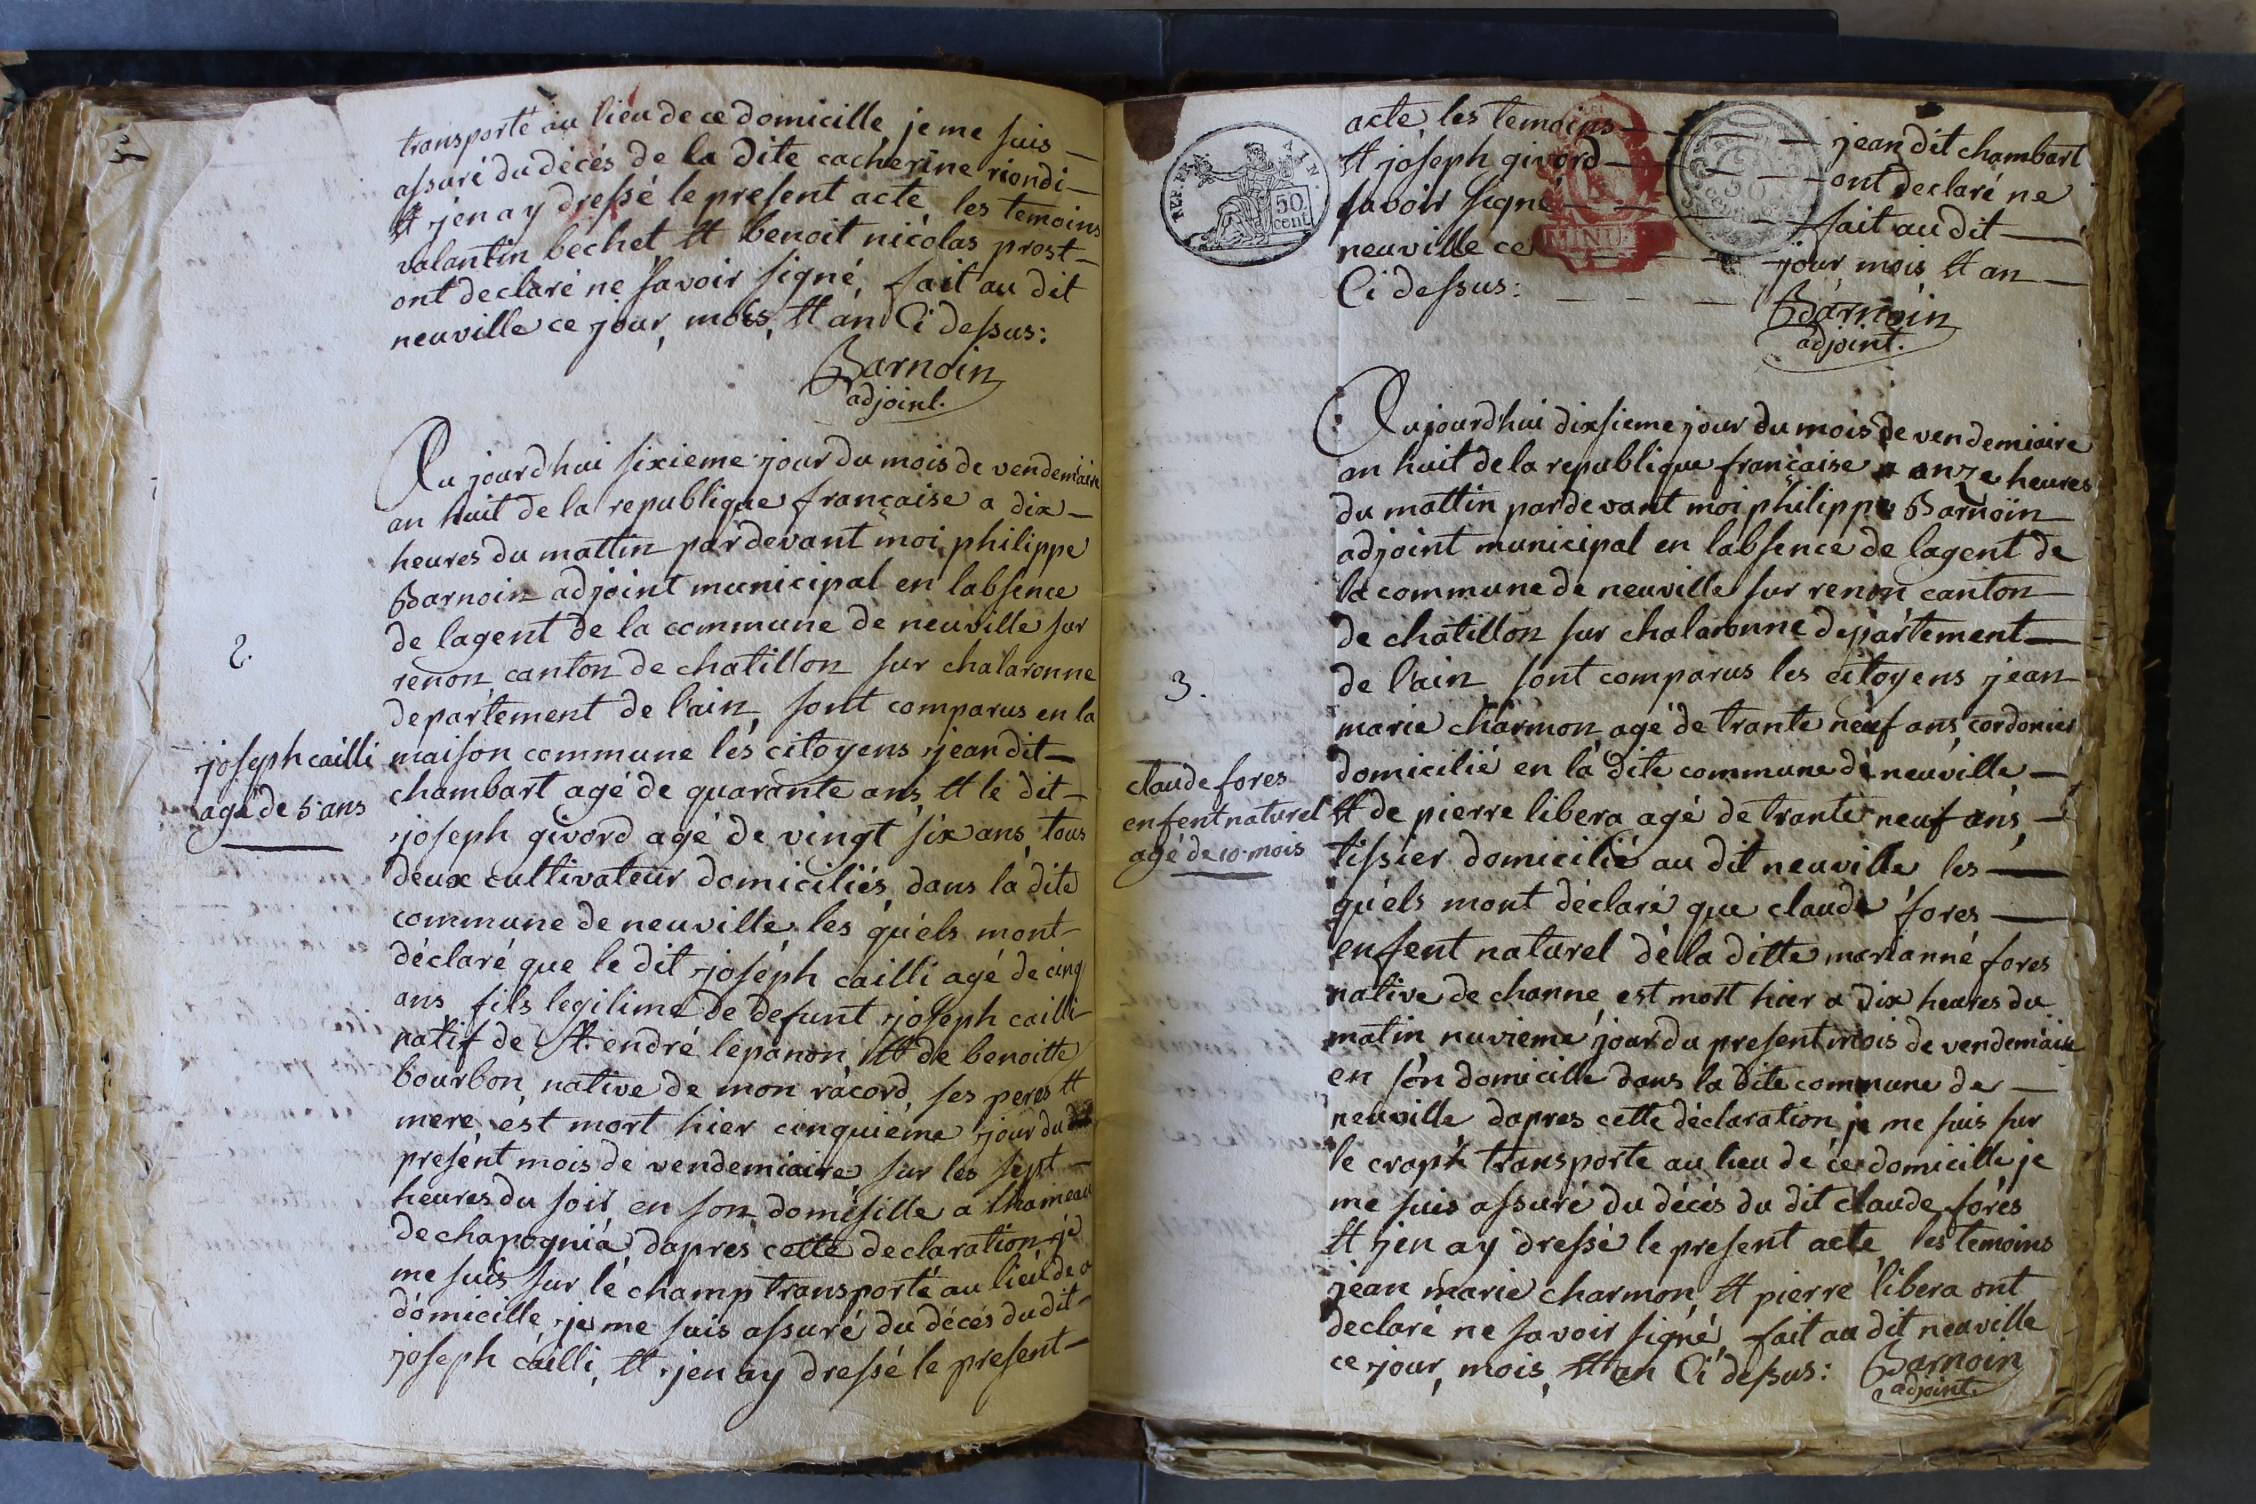 transporté au lieu de ce domicille je me suis
assuré du décés de la dite cacherine riondi
et jen ay dressé le present acte les temoins
valantin bechet et benoit nicolas prost
ont declaré ne savoir signé, fait au dit
neuville ce jour, mois, et an Ci dessus:
Barnoin
adjoint.
2.
joseph cailli
agé de 5 ans
Aujourdhui sixieme jour du mois de vendemiaire
an huit de la republique française a dix
heures du mattin pardevant moi philippe
Barnoin adjoint municipal en labsence
de lagent de la commune de neuville sur
renon canton de chatillon sur chalaronne
departement de l'ain, sont comparus en la
maison commune les citoyens jean dit
chambart agé de quarante ans et le dit
joseph givord agé de vingt six ans, tous
deux cultivateur domiciliés dans la dite
commune de neuville les quéls mont
déclaré que le dit joséph cailli agé de cinq
ans fils legitime de defunt joseph cailli
natif de st. endré lepanon et de benoitte
bourbon native de mon racord, ses peres et
mere est mort hier cinquiéme jour du
present mois de vendemiaire sur les sept
heures du soir en son domisille a lhameau
de chapognia dapres cette declaration je
me suis sur le champ transporté au lieu de ce
domicille je me suis assuré du décés du dit
joseph cailli, et jen ay dressé le present
REP. FRA
50
cent
MINU
acte les temoins jean dit chambart
et joseph givord ont declaré ne
savoir signé fait au dit
neuville ce jour mois et an
Ci dessus:
Barnoin
adjoint.
3.
claude fores
enfent naturel
agé de 10 mois
Aujourdhui dixsieme jour du mois de vendemiaire
an huit de la republique française a onze heures
du mattin pardevant moi philippe Barnoin
adjoint municipal en labsence de lagent de
la commune de neuville sur renon canton
de chatillon sur chalaronne departement
de l'ain sont comparus les citoyens jean
marie charmon agé de trante neuf ans, cordonier
domicilié en la dite commune de neuville
et de pierre libera agé de trante neuf ans
tissier domicilié au dit neuville les
quéls mont déclaré que claude fores
enfent naturel de la ditte marianné fores
native de channe est mort hier a dix heures du
matin nuvieme jour du present mois de vendemiaire
en son domicille dans la dite commune de
neuville dapres cette déclaration je me suis sur
le transporte au lieu de ce domicille je
me suis assuré du décés du dit claude forés
et jen ay dressé le present acte les temoins
jean marie charmon et pierre libera ont
declaré ne savoir signé, fait au dit neuville
ce jour, mois, et an Ci dessus: Barnoin
adjoint.